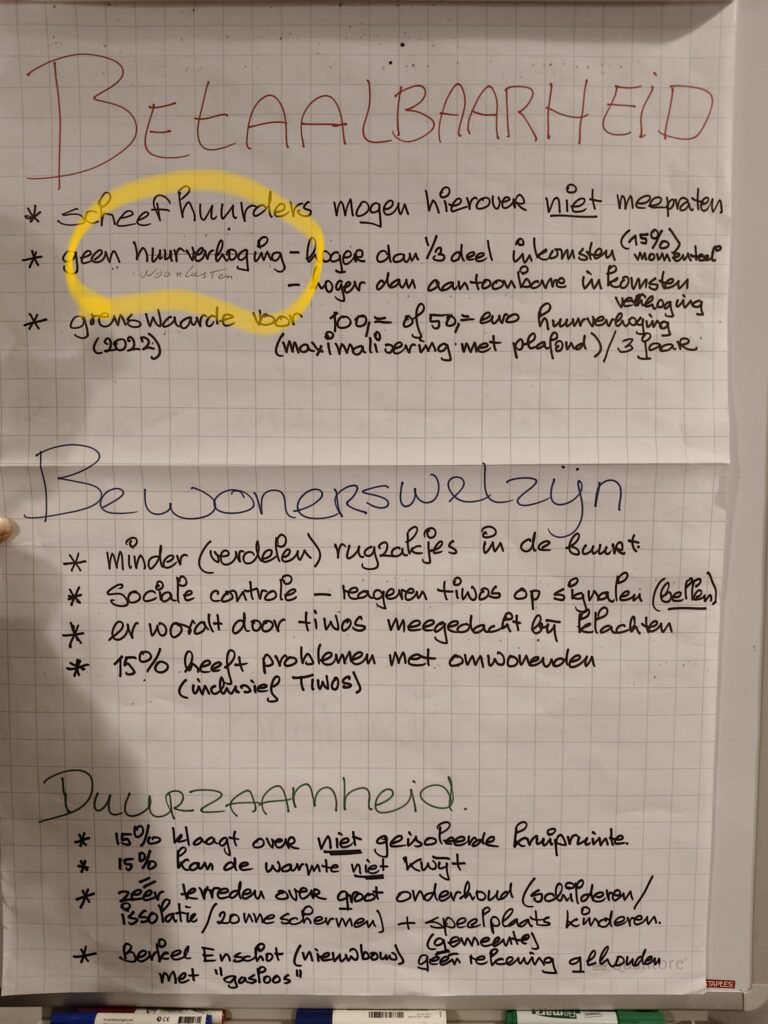 BETAALBAARHEID
* scheefhuurders mogen hierover niet meepraten
* geen huurverhoging - hoger dan 1/3 deel inkomsten (15%) momenteel
woonlasten
- hoger dan aantoonbare inkomsten verhoging
* grenswaarde voor 100,= of 50,= euro huurverhoging
(2022) (maximalisering met plafond) / 3 jaar
Bewonerswelzijn
* minder (verdelen) rugzakjes in de buurt.
* Sociale controle – reageren tiwos op signalen (bellen)
* er wordt door tiwos meegedacht bij klachten
* 15% heeft problemen met omwonenden
(inclusief TIWOS)
DUURZAAMHEID.
* 15% klaagt over niet geisoleerde kruipruimte.
* 15% kan de warmte niet kwijt
* zéér tevreden over groot onderhoud (schilderen/
issolatie/zonneschermen) + speelplaats kinderen.
(gemeente)
* Berkel Enschot (nieuwbouw) geen rekening gehouden
met "gasloos"
STAPLES